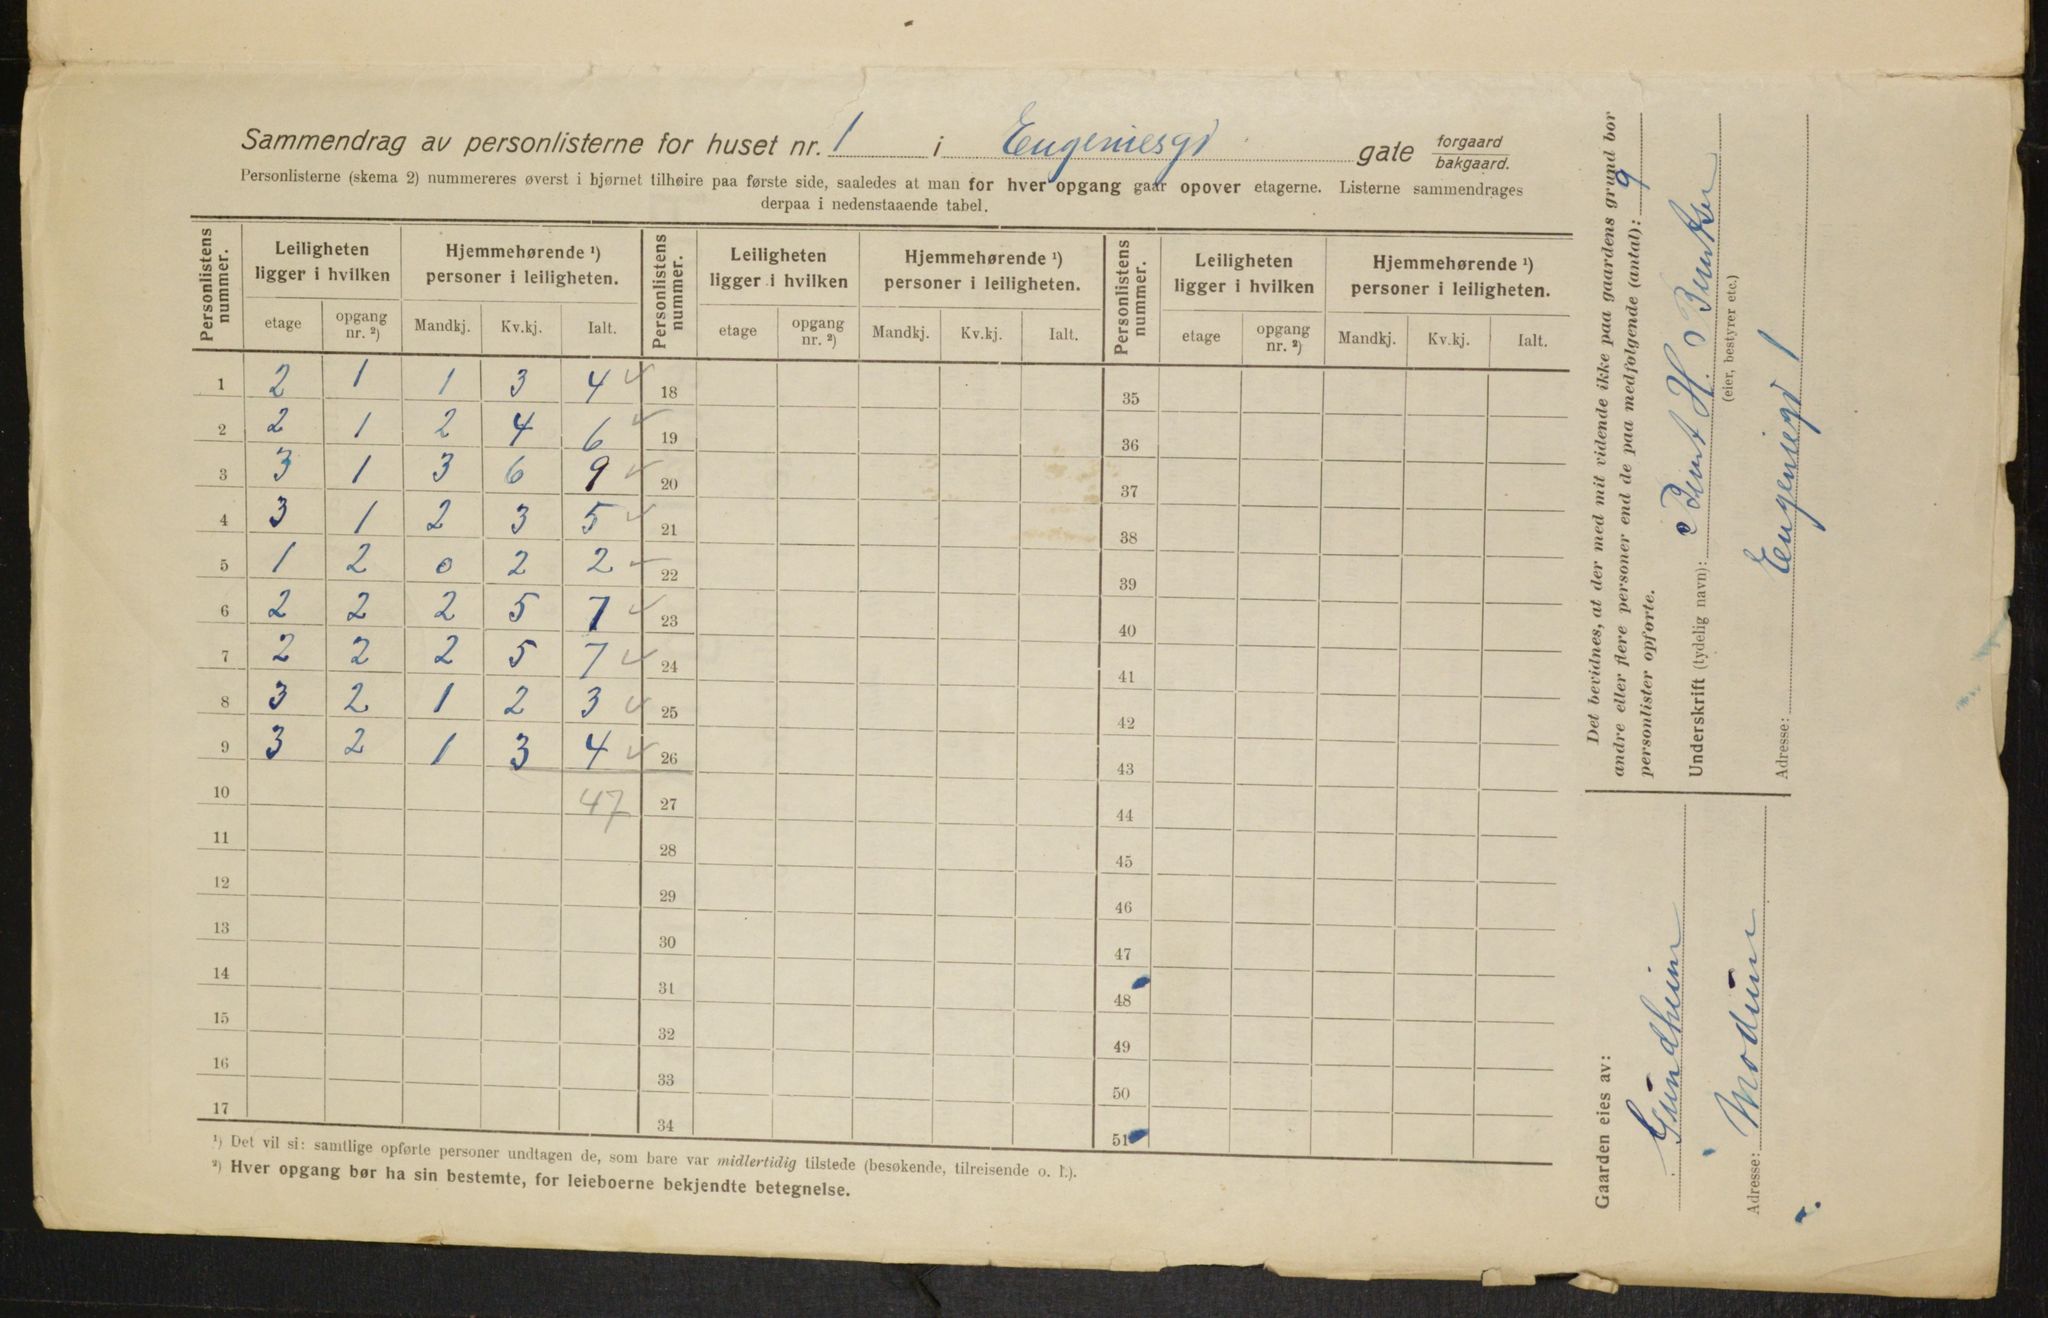 Sammendrag av personlisterne for huset nr. 1 i Eugeniesgt gate forgaard
bakgaard.
Personlisterne (skema 2) nummereres øverst i hjørnet tilhøire paa første side, saaledes at man for hver opgang gaar opover etagerne. Listerne sammendrages
derpaa i nedenstaaende tabel.
Personlistens nummer. Leiligheten ligger i hvilken Hjemmehørende ¹) personer i leiligheten. Personlistens nummer. Leiligheten ligger i hvilken Hjemmehørende ¹) personer i leiligheten. Personlistens nummer. Leiligheten ligger i hvilken Hjemmehørende ¹) personer i leiligheten.
etage opgang nr. ²) Mandkj. Kv.kj. Ialt. etage opgang nr. ²) Mandkj. Kv.kj. Ialt. etage opgang nr. ²) Mandkj. Kv.kj. Ialt.
1 2 1 1 3 4 ✓ 18 35
2 2 1 2 4 6 ✓ 19 36
3 3 1 3 6 9 ✓ 20 37
4 3 1 2 3 5 ✓ 21 38
5 1 2 0 2 2 ✓ 22 39
6 2 2 2 5 7 ✓ 23 40
7 2 2 2 5 7 ✓ 24 41
8 3 2 1 2 3 ✓ 25 42
9 3 2 1 3 4 ✓ 26 43
10 47 27 44
11 28 45
12 29 46
13 30 47
14 31 48
15 32 49
16 33 50
17 34 51
¹) Det vil si: samtlige opførte personer undtagen de, som bare var midlertidig tilstede (besøkende, tilreisende o. l.).
²) Hver opgang bør ha sin bestemte, for leieboerne bekjendte betegnelse.
Det bevidnes, at der med mit vidende ikke paa gaardens grund bor
andre eller flere personer end de paa medfølgende (antal): 9
personlister opførte.
Underskrift (tydelig navn): Bernt H.
(eier, bestyrer etc.)
Adresse: Eugeniegt 1
Gaarden eies av:
Gundheim
Adresse: Modum